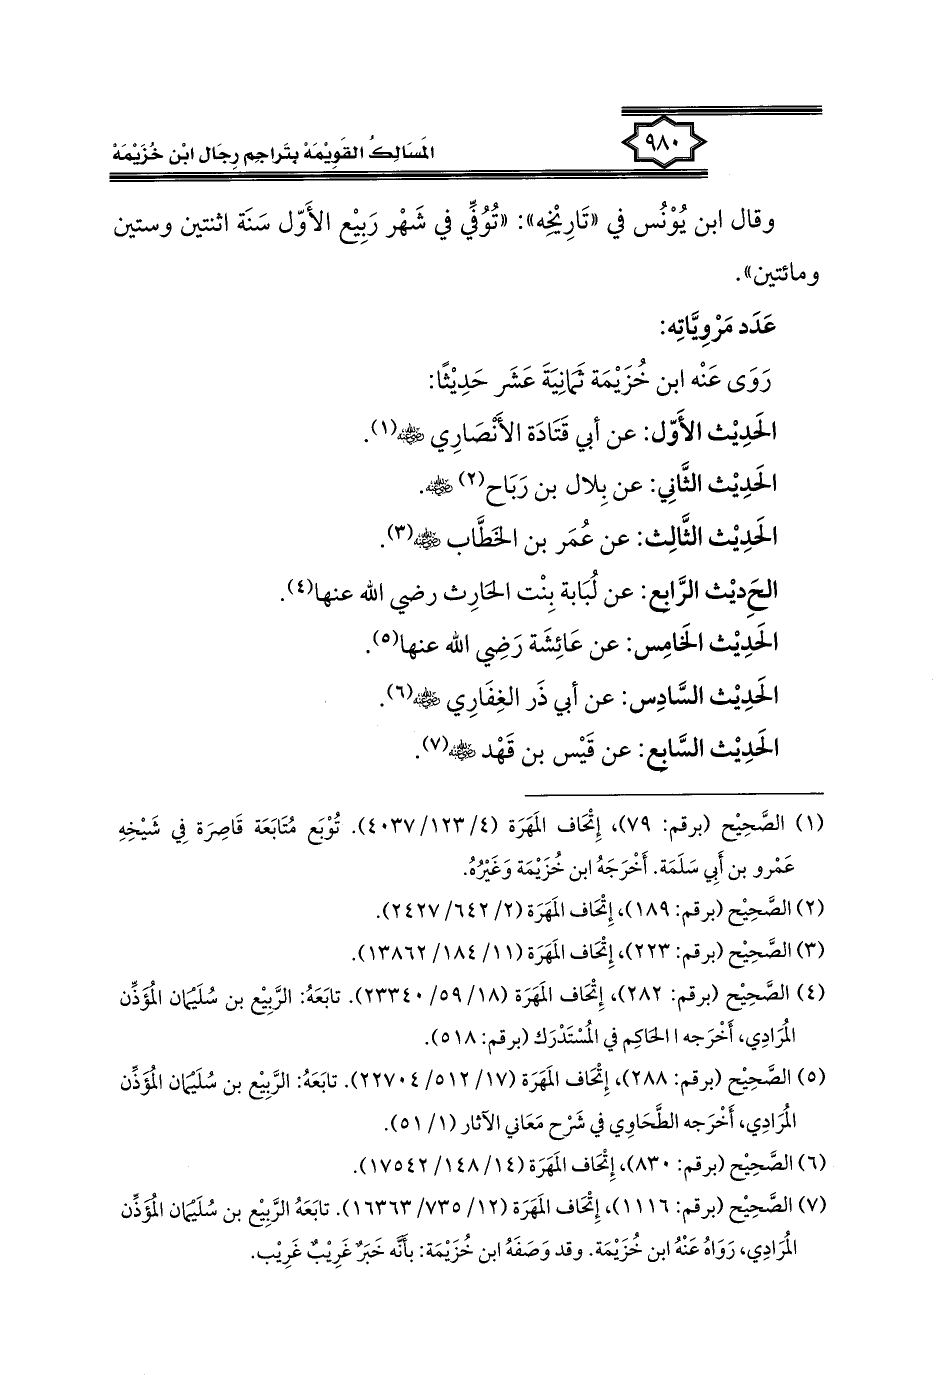 ٩٨٠
المسالك القويمة بتراجم رجال ابن خزيمة
وقال ابن يُوْنُس في «تَارِيْخِه»: «تُوُفِّي في شَهْر رَبِيْع الأَوّل سَنَة اثنتين وستين
ومائتين».
عَدَد مَرْوِيَّاتِه:
رَوَى عَنْه ابن خُزَيْمَة ثَمَانِيَةَ عَشَر حَدِيْثًا:
الحَدِيْث الأَوّل: عن أبي قَتَادَة الأَنْصَاري رضي الله عنه(١).
الحَدِيْث الثَّاني: عن بِلال بن رَبَاح(٢) رضي الله عنه.
الحَدِيْث الثَّالِث: عن عُمَر بن الخَطَّاب رضي الله عنه(٣).
الحَدِيْث الرَّابع: عن لُبَابة بِنْت الحَارِث رضي الله عنها(٤).
الحَدِيْث الخَامِس: عن عَائِشَة رَضِي الله عنها(٥).
الحَدِيْث السَّادِس: عن أبي ذَر الغِفَاري رضي الله عنه(٦).
الحَدِيْث السَّابع: عن قَيْس بن قَهْد رضي الله عنه(٧).
(١) الصَّحِيْح (برقم: ٧٩)، إتْحَاف المَهَرَة (٤/ ١٢٣/ ٤٠٣٧). تُوْبَع مُتَابَعَة قَاصِرَة فِي شَيْخِهِ
عَمْرو بن أبي سَلَمَة. أَخْرَجَهُ ابن خُزَيْمَة وَغَيْرُهُ.
(٢) الصَّحِيْح (برقم: ١٨٩)، إتْحَاف المَهَرَة (٢/ ٦٤٢/ ٢٤٢٧).
(٣) الصَّحِيْح (برقم: ٢٢٣)، إتْحَاف المَهَرَة (١١/ ١٨٤/ ١٣٨٦٢).
(٤) الصَّحِيْح (برقم: ٢٨٢)، إتْحَاف المَهَرَة (١٨/ ٥٩/ ٢٣٣٤٠). تابَعَهُ: الرَّبِيْع بن سُلَيْمان المُؤَذِّن
المُرَادِي، أَخْرَجه ا الحَاكِم في المُسْتَدْرَك (برقم: ٥١٨).
(٥) الصَّحِيْح (برقم: ٢٨٨)، إتْحَاف المَهَرَة (١٧/ ٥١٢/ ٢٢٧٠٤). تابَعَهُ: الرَّبِيْع بن سُلَيْمان المُؤَذِّن
المُرَادِي، أَخْرَجه الطَّحَاوِي في شَرْح مَعَاني الآثار (١/ ٥١).
(٦) الصَّحِيْح (برقم: ٨٣٠)، إتْحَاف المَهَرَة (١٤/ ١٤٨/ ١٧٥٤٢).
(٧) الصَّحِيْح (برقم: ١١١٦)، إتْحَاف المَهَرَة (١٢/ ٧٣٥/ ١٦٣٦٣). تابَعَهُ الرَّبِيْع بن سُلَيْمان المُؤَذِّن
المُرَادِي، رَوَاهُ عَنْهُ ابن خُزَيْمَة. وقد وَصَفَهُ ابن خُزَيْمَة: بأنَّه خَبَرٌ غَرِيْبٌ غَرِيْب.